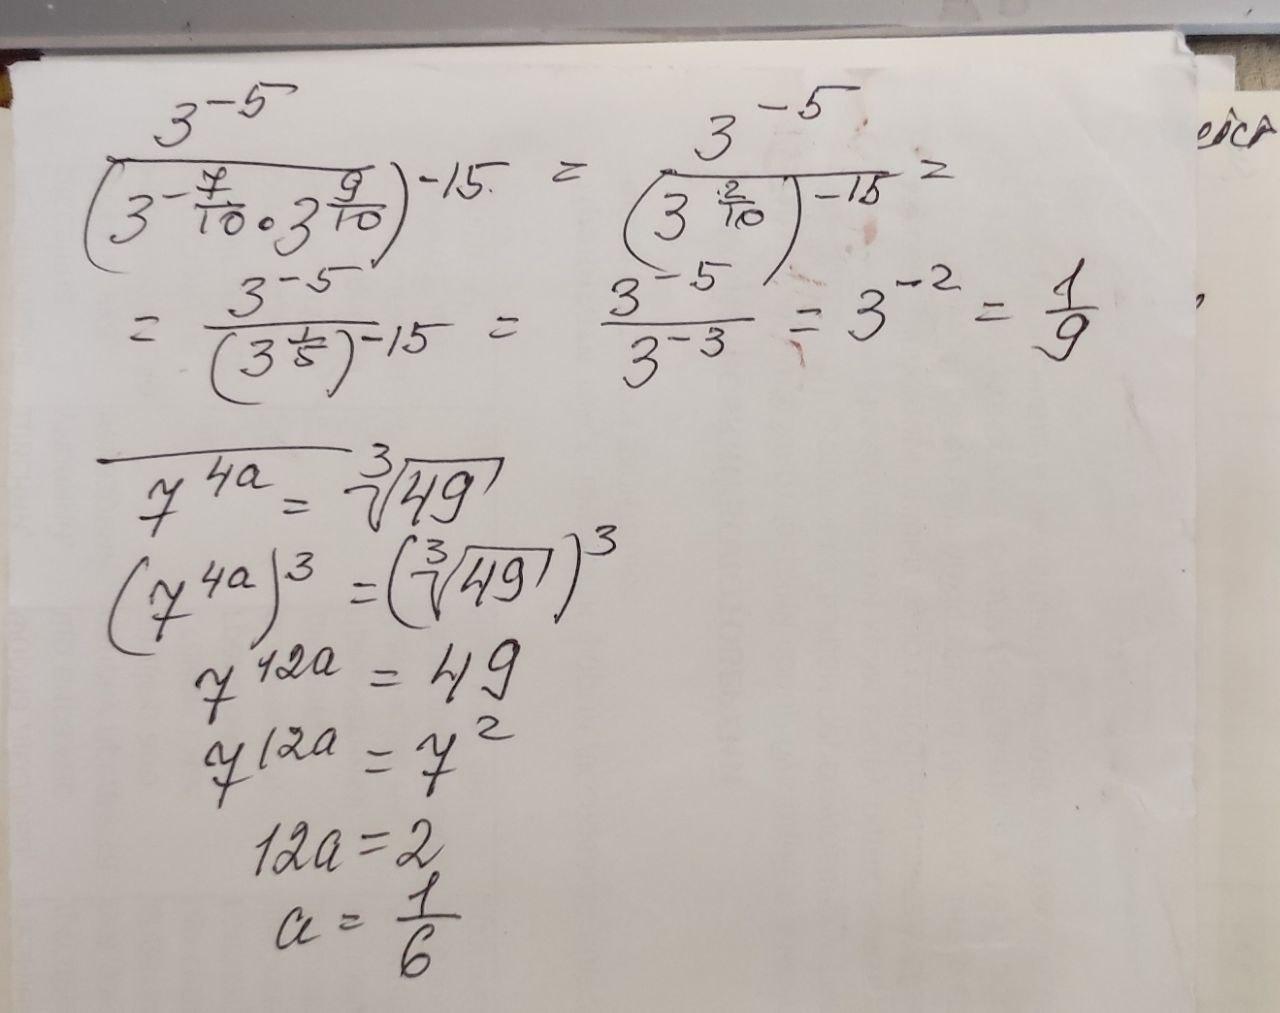 3^{-5} / (3^{-7/10} · 3^{9/10})^{-15} = 3^{-5} / (3^{2/10})^{-15} =
= 3^{-5} / (3^{1/5})^{-15} = 3^{-5} / 3^{-3} = 3^{-2} = 1/9
7^{4a} = ∛49
(7^{4a})^3 = (∛49)^3
7^{12a} = 49
7^{12a} = 7^2
12a = 2
a = 1/6